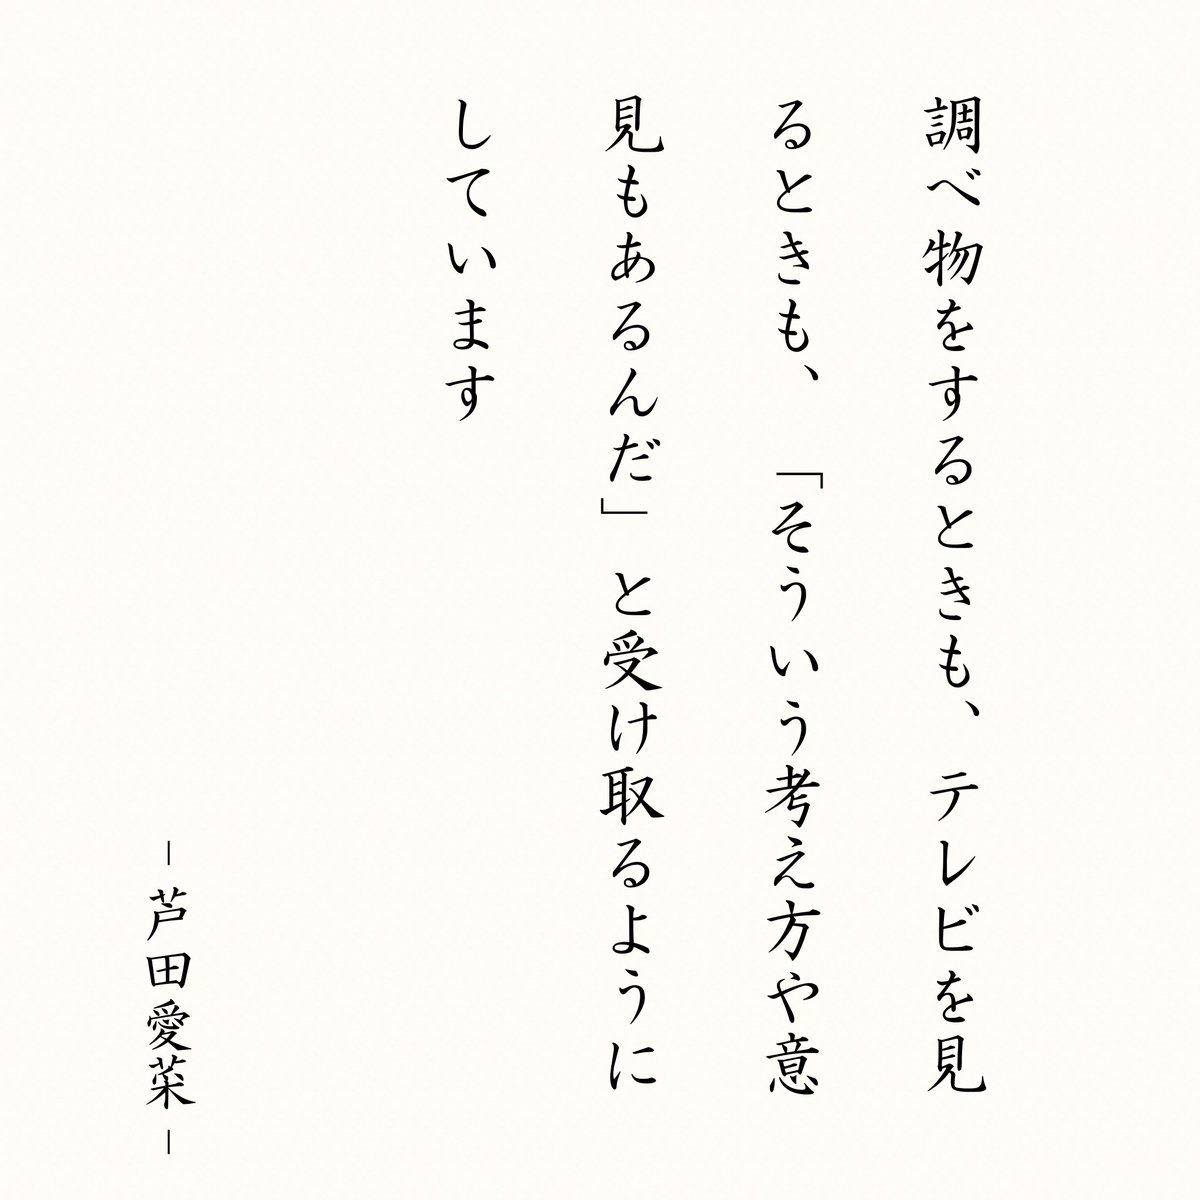 調べ物をするときも、テレビを見
るときも、「そういう考え方や意
見もあるんだ」と受け取るように
しています
– 芦田愛菜 –